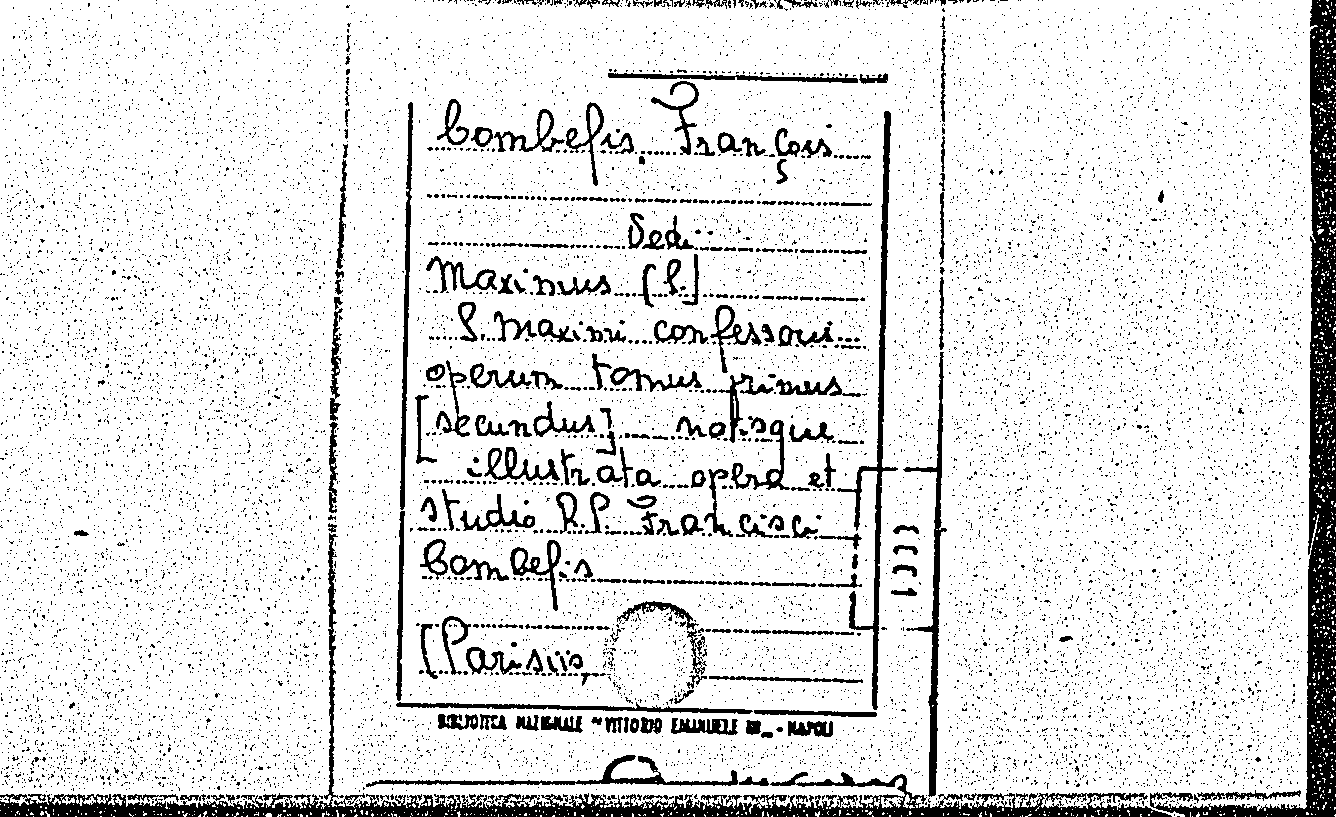 Combefis, François
Vedi
Maximus [S.]
S. Maximi confessori...
operum tomus primus
[secundus] notisque
illustrata opera et
studio R.P. Francisci
Combefis
(Parisiis,
BIBLIOTECA NAZIONALE "VITTORIO EMANUELE III" - NAPOLI